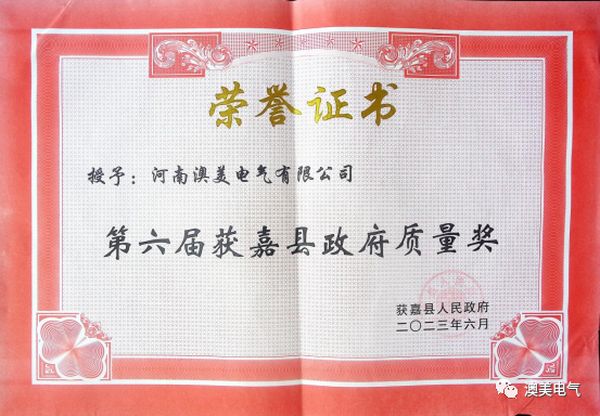 荣誉证书
授予：河南澳美电气有限公司
第六届获嘉县政府质量奖
获嘉县人民政府
二〇二三年六月
澳美电气